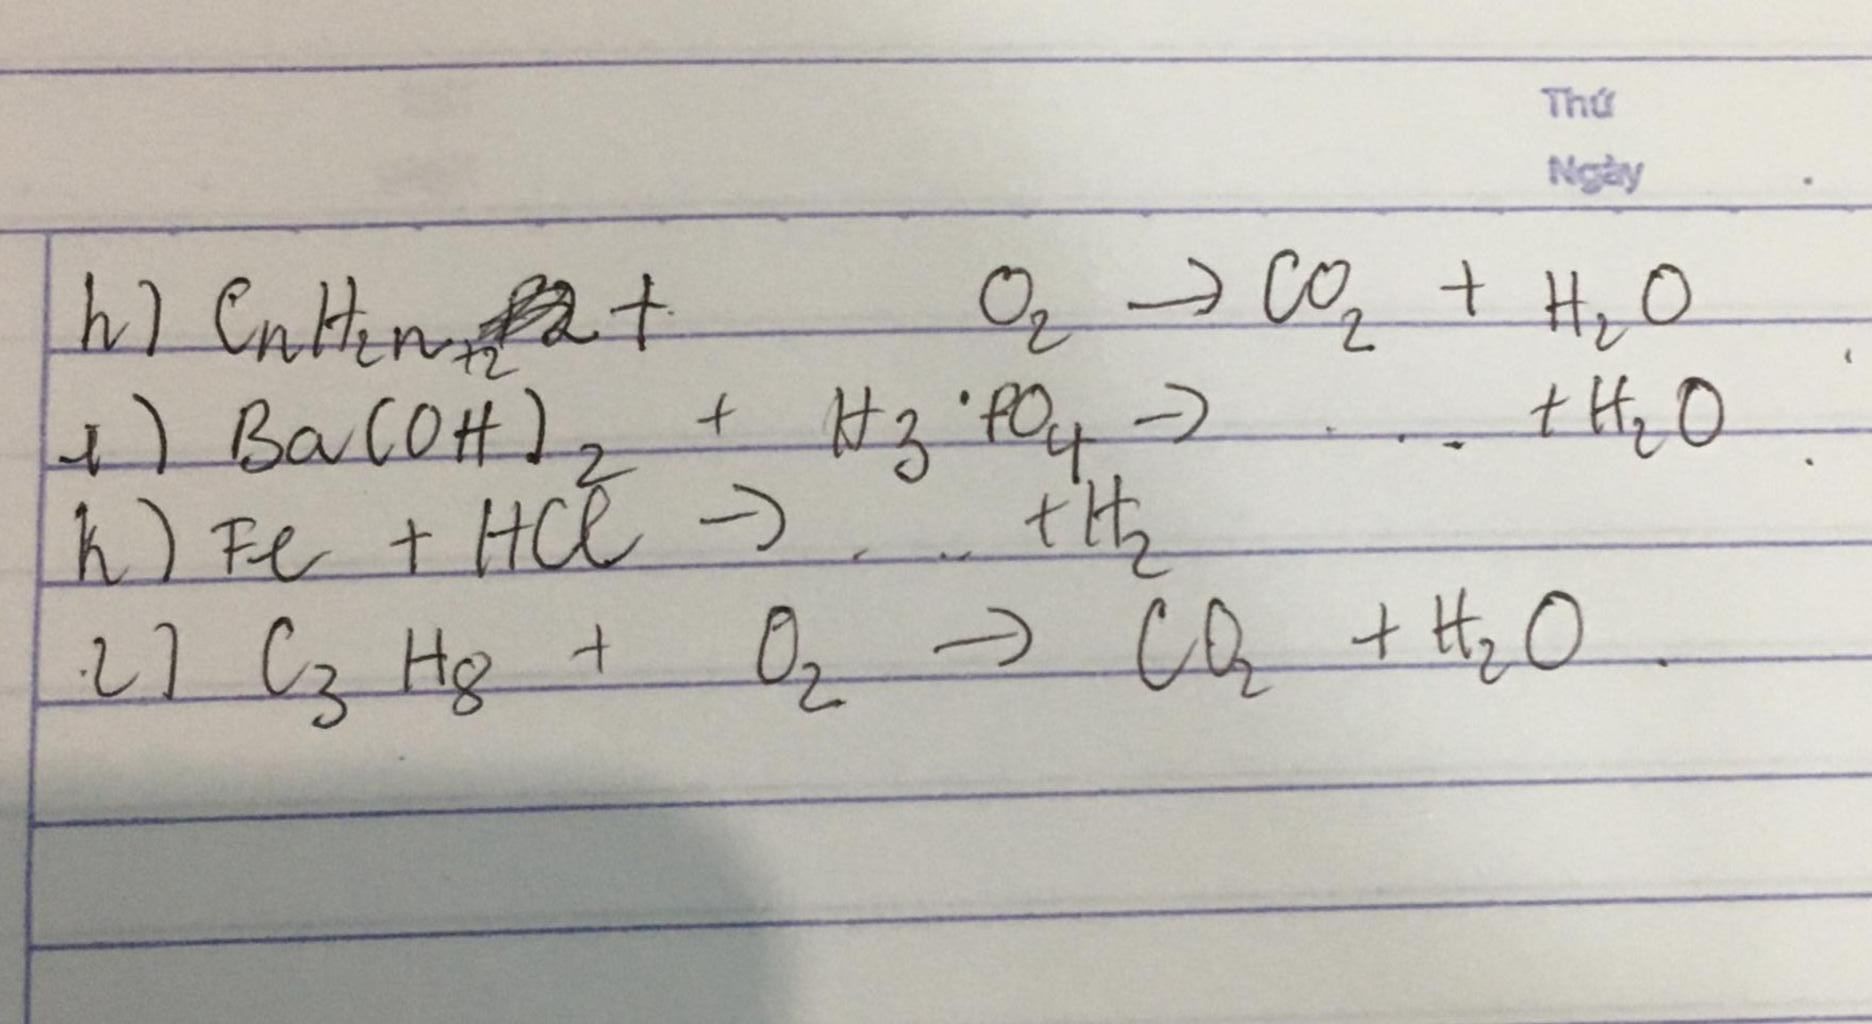 Thứ
Ngày
h) CnH2n+2 + O2 → CO2 + H2O
i) Ba(OH)2 + H3PO4 → ..... + H2O
k) Fe + HCl → .... + H2
l) C3H8 + O2 → CO2 + H2O.